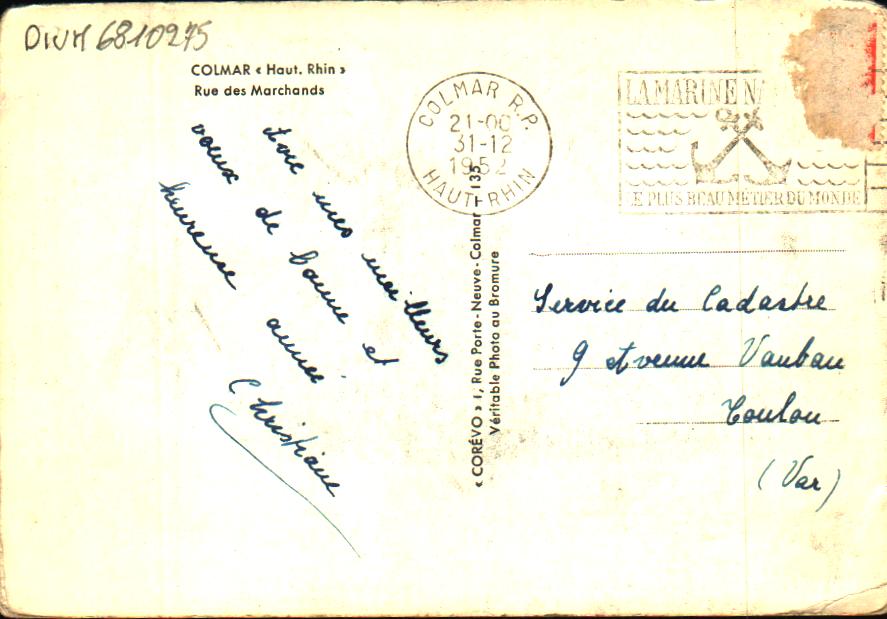 DIVH 6810275
COLMAR « Haut. Rhin »
Rue des Marchands
Avec mes meilleurs
voeux de bonne et
heureuse année
Christiane
COLMAR R.P.
21-00
31-12
1952
HAUT-RHIN
LA MARINE NA
LE PLUS BEAU MÉTIER DU MONDE
« CORÉVO » 1, Rue Porte-Neuve-Colmar - 135
Véritable Photo au Bromure
Service du Cadastre
9 Avenue Vauban
Toulon
(Var)